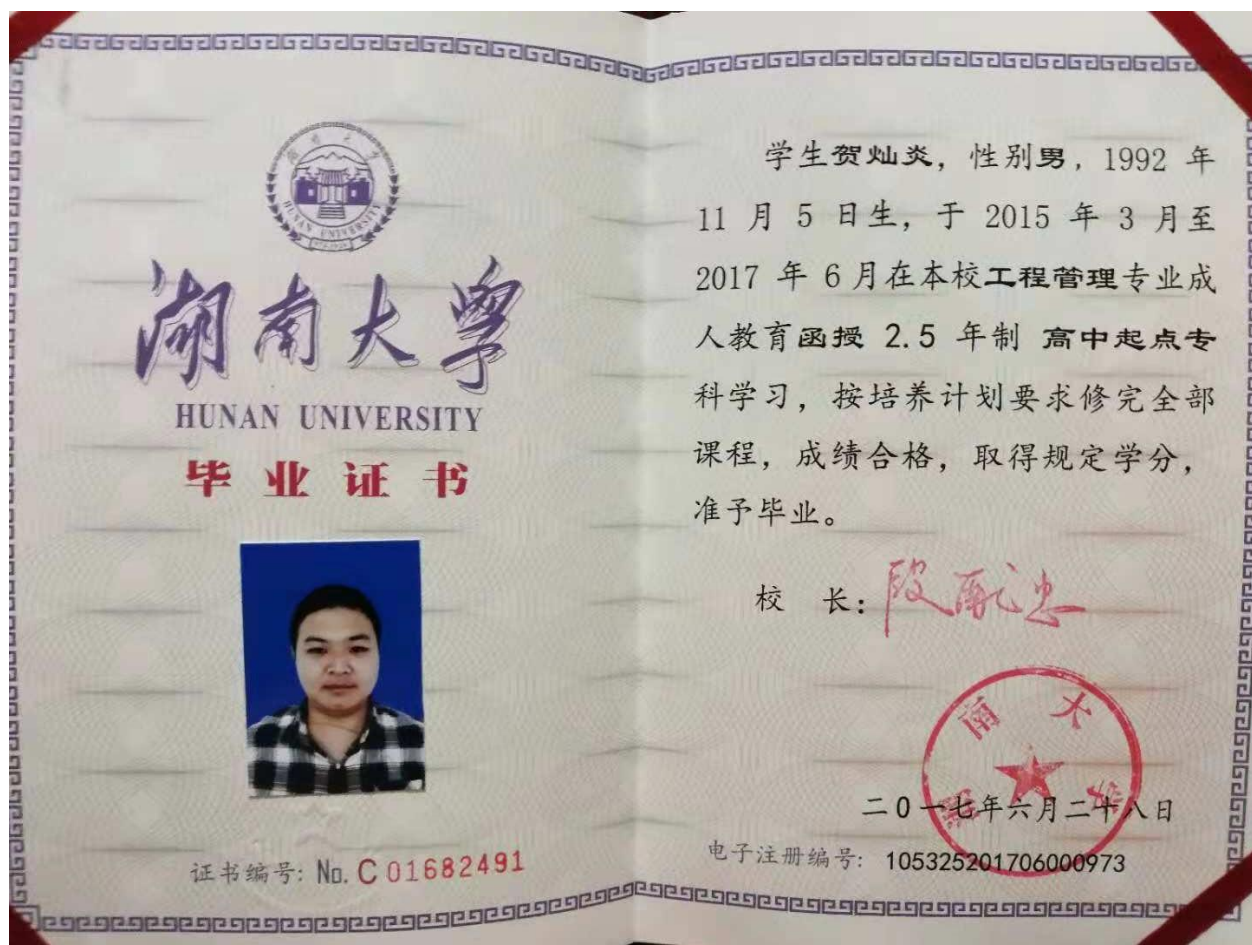 湖南大学
HUNAN UNIVERSITY
湖南大学
HUNAN UNIVERSITY
毕业证书
证书编号: No. C 01682491
学生贺灿炎，性别男，1992 年
11 月 5 日生，于 2015 年 3 月至
2017 年 6 月在本校工程管理专业成
人教育函授 2.5 年制 高中起点专
科学习，按培养计划要求修完全部
课程，成绩合格，取得规定学分，
准予毕业。
校 长：段献忠
湖南大学
二0一七年六月二十八日
电子注册编号: 105325201706000973